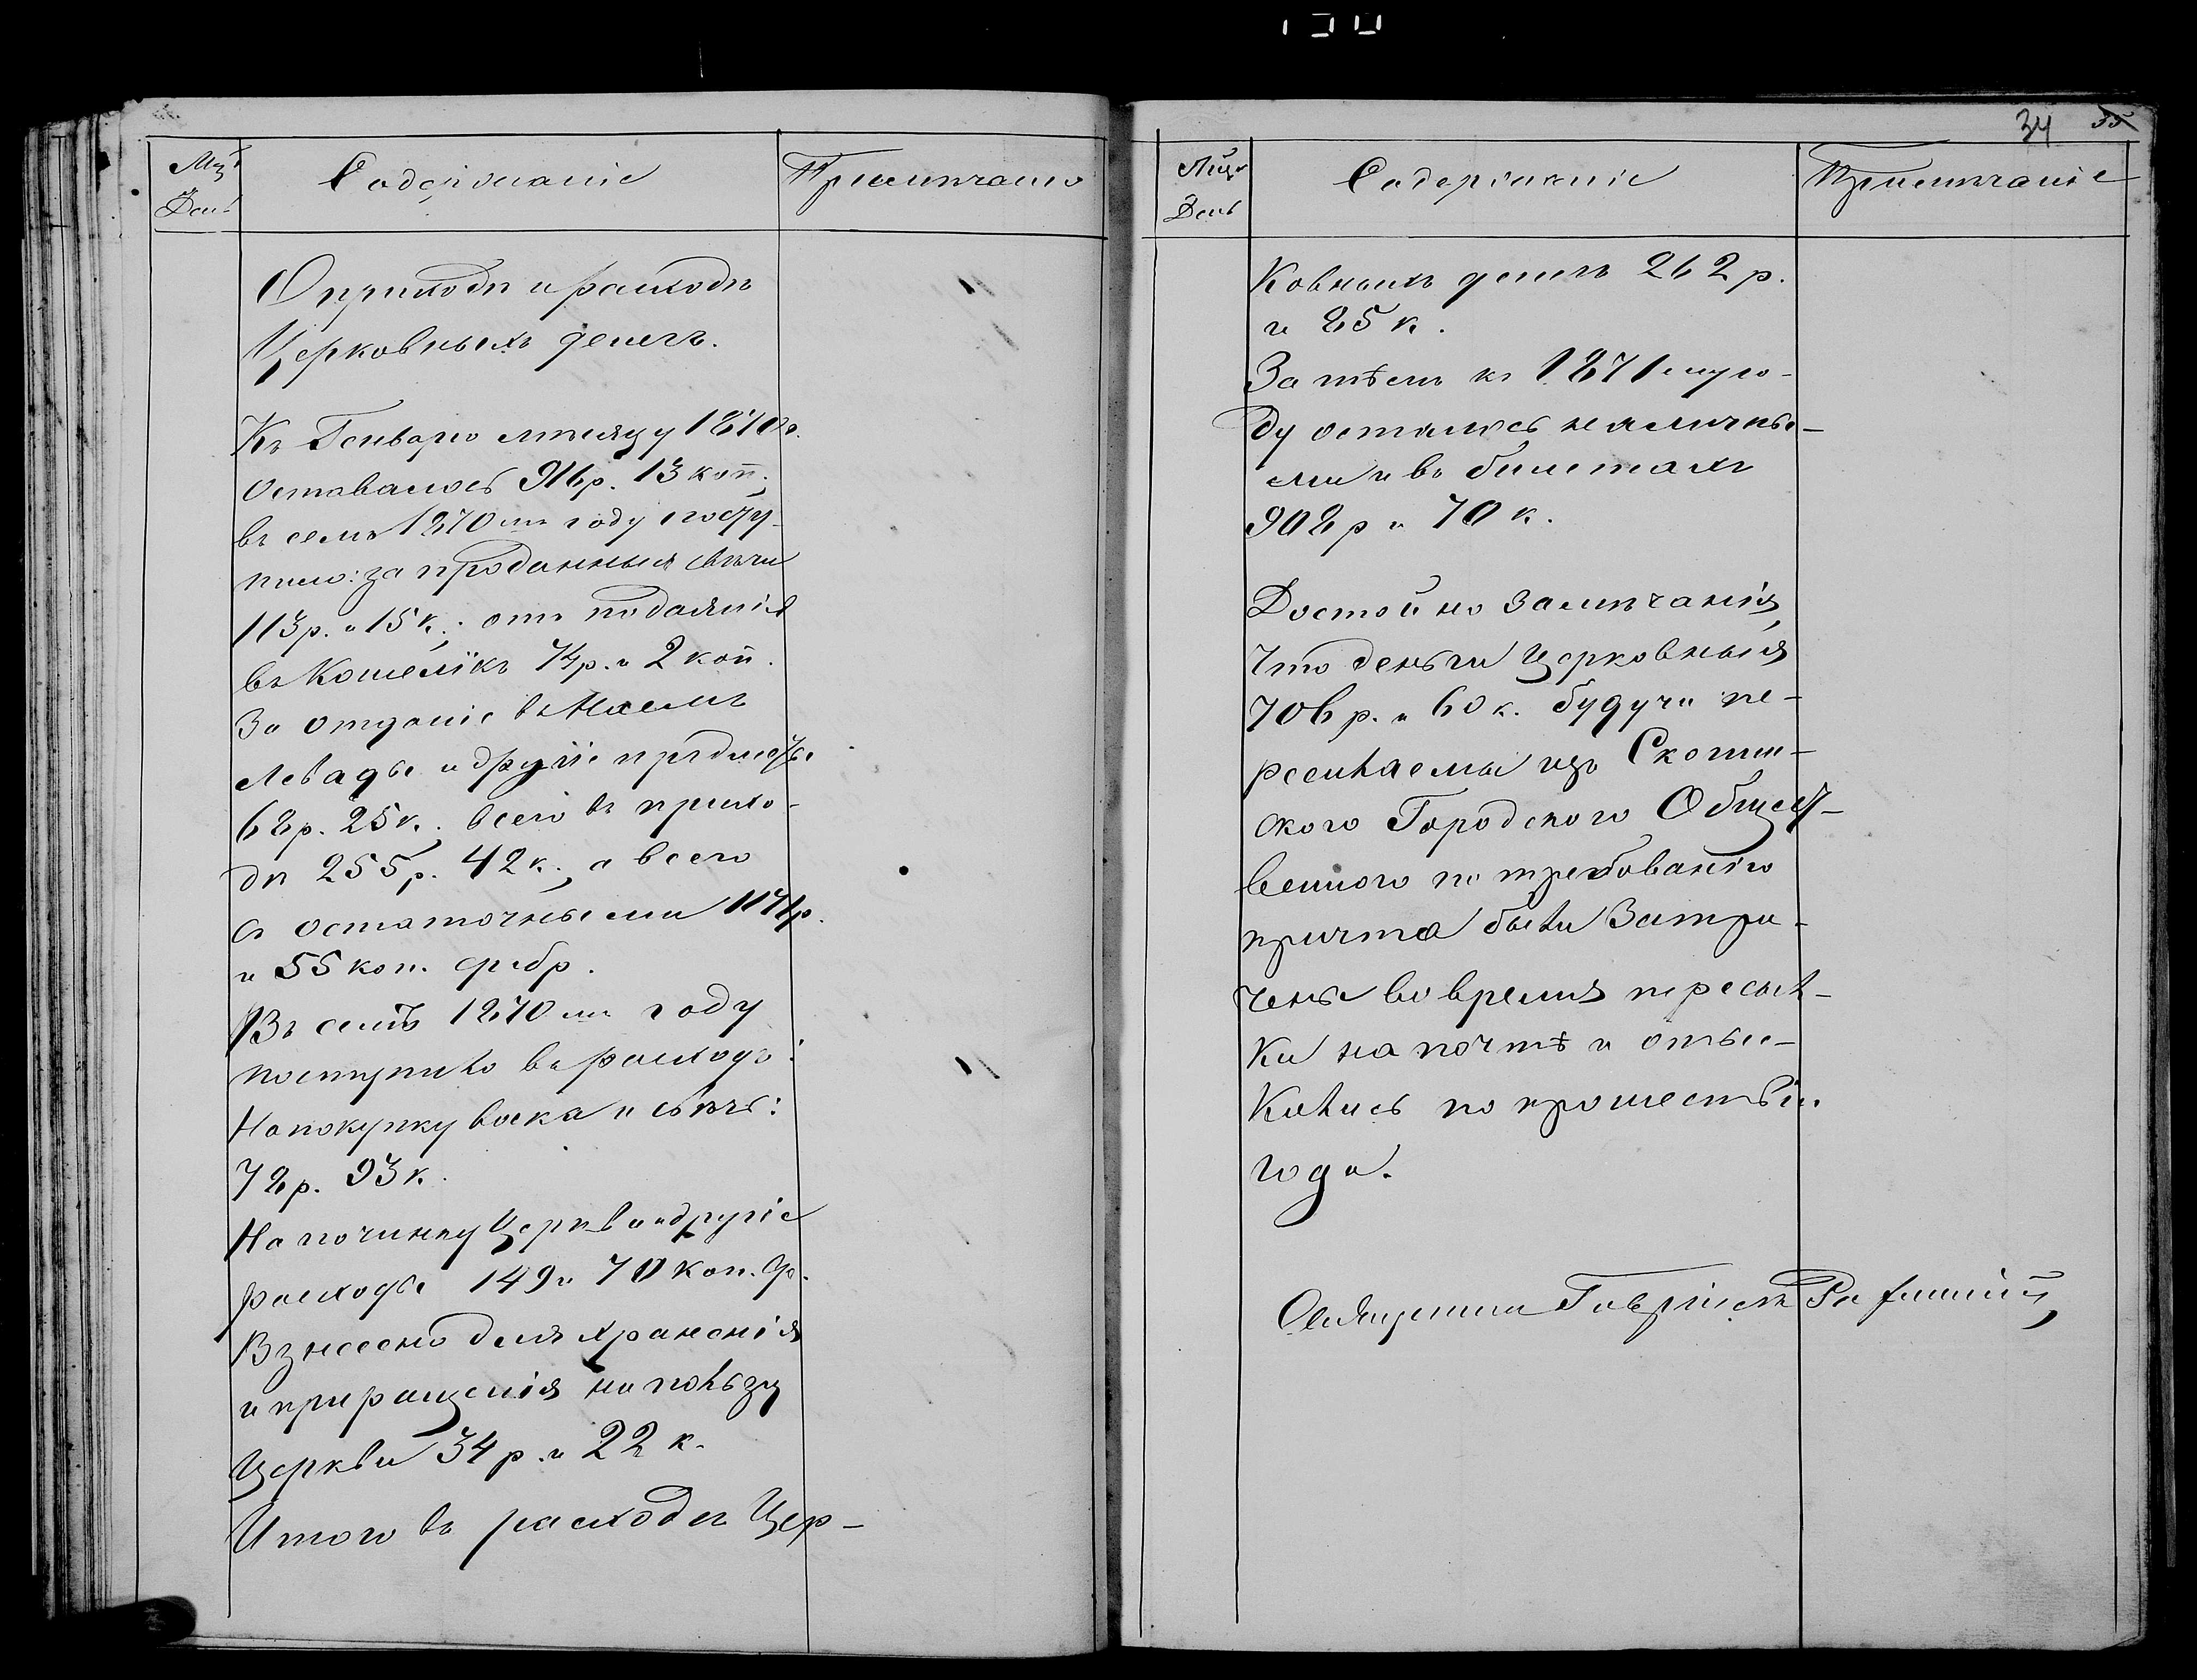 34 35
Мѣс.
День
Содержаніе
Примѣчаніе
О приходѣ и расходѣ
Церковныхъ денегъ.
Къ Генварю мѣсяцу 1870 г.
оставалось 916 р. 13 коп.;
въ семъ 1870 мъ году посту-
пило: за проданныя свѣчи
113 р. и 15 к.; отъ подаянія
въ Кошелікъ 74 р. и 2 коп.
За отданіе въ Наемъ
левады и другіе предметы
68 р. 25 к.; всего въ прихо-
дѣ 255 р. 42 к., а всего
съ остаточными 1171 р.
и 55 коп. сребр.
Въ семъ 1870 мъ году
поступило въ расходъ:
На покупку воска и свѣчь:
78 р. 93 к.
На починку Церкви и другіе
расходы 149 и 70 коп. ср.
Взнесено для храненія
и приращенія на пользу
Церкви 34 р. и 22 к.
Итого въ расходѣ Цер-
Мѣс.
День
Содержаніе
Примѣчаніе
ковныхъ денегъ 262 р.
и 85 к.
Затѣмъ къ 1871 му го-
ду осталось наличны-
ми и въ билетахъ
908 р и 70 к.
Достойно замѣчанія,
что деньги Церковныя
706 р. и 60 к. будучи пе-
ресылаемы изъ Скопин-
ского Городского Общест-
веннаго по требованію
причта были Затра-
чены во время пересыл-
ки на почтѣ и отыс-
кались по прошествіи
года.
Священникъ Гавріилъ